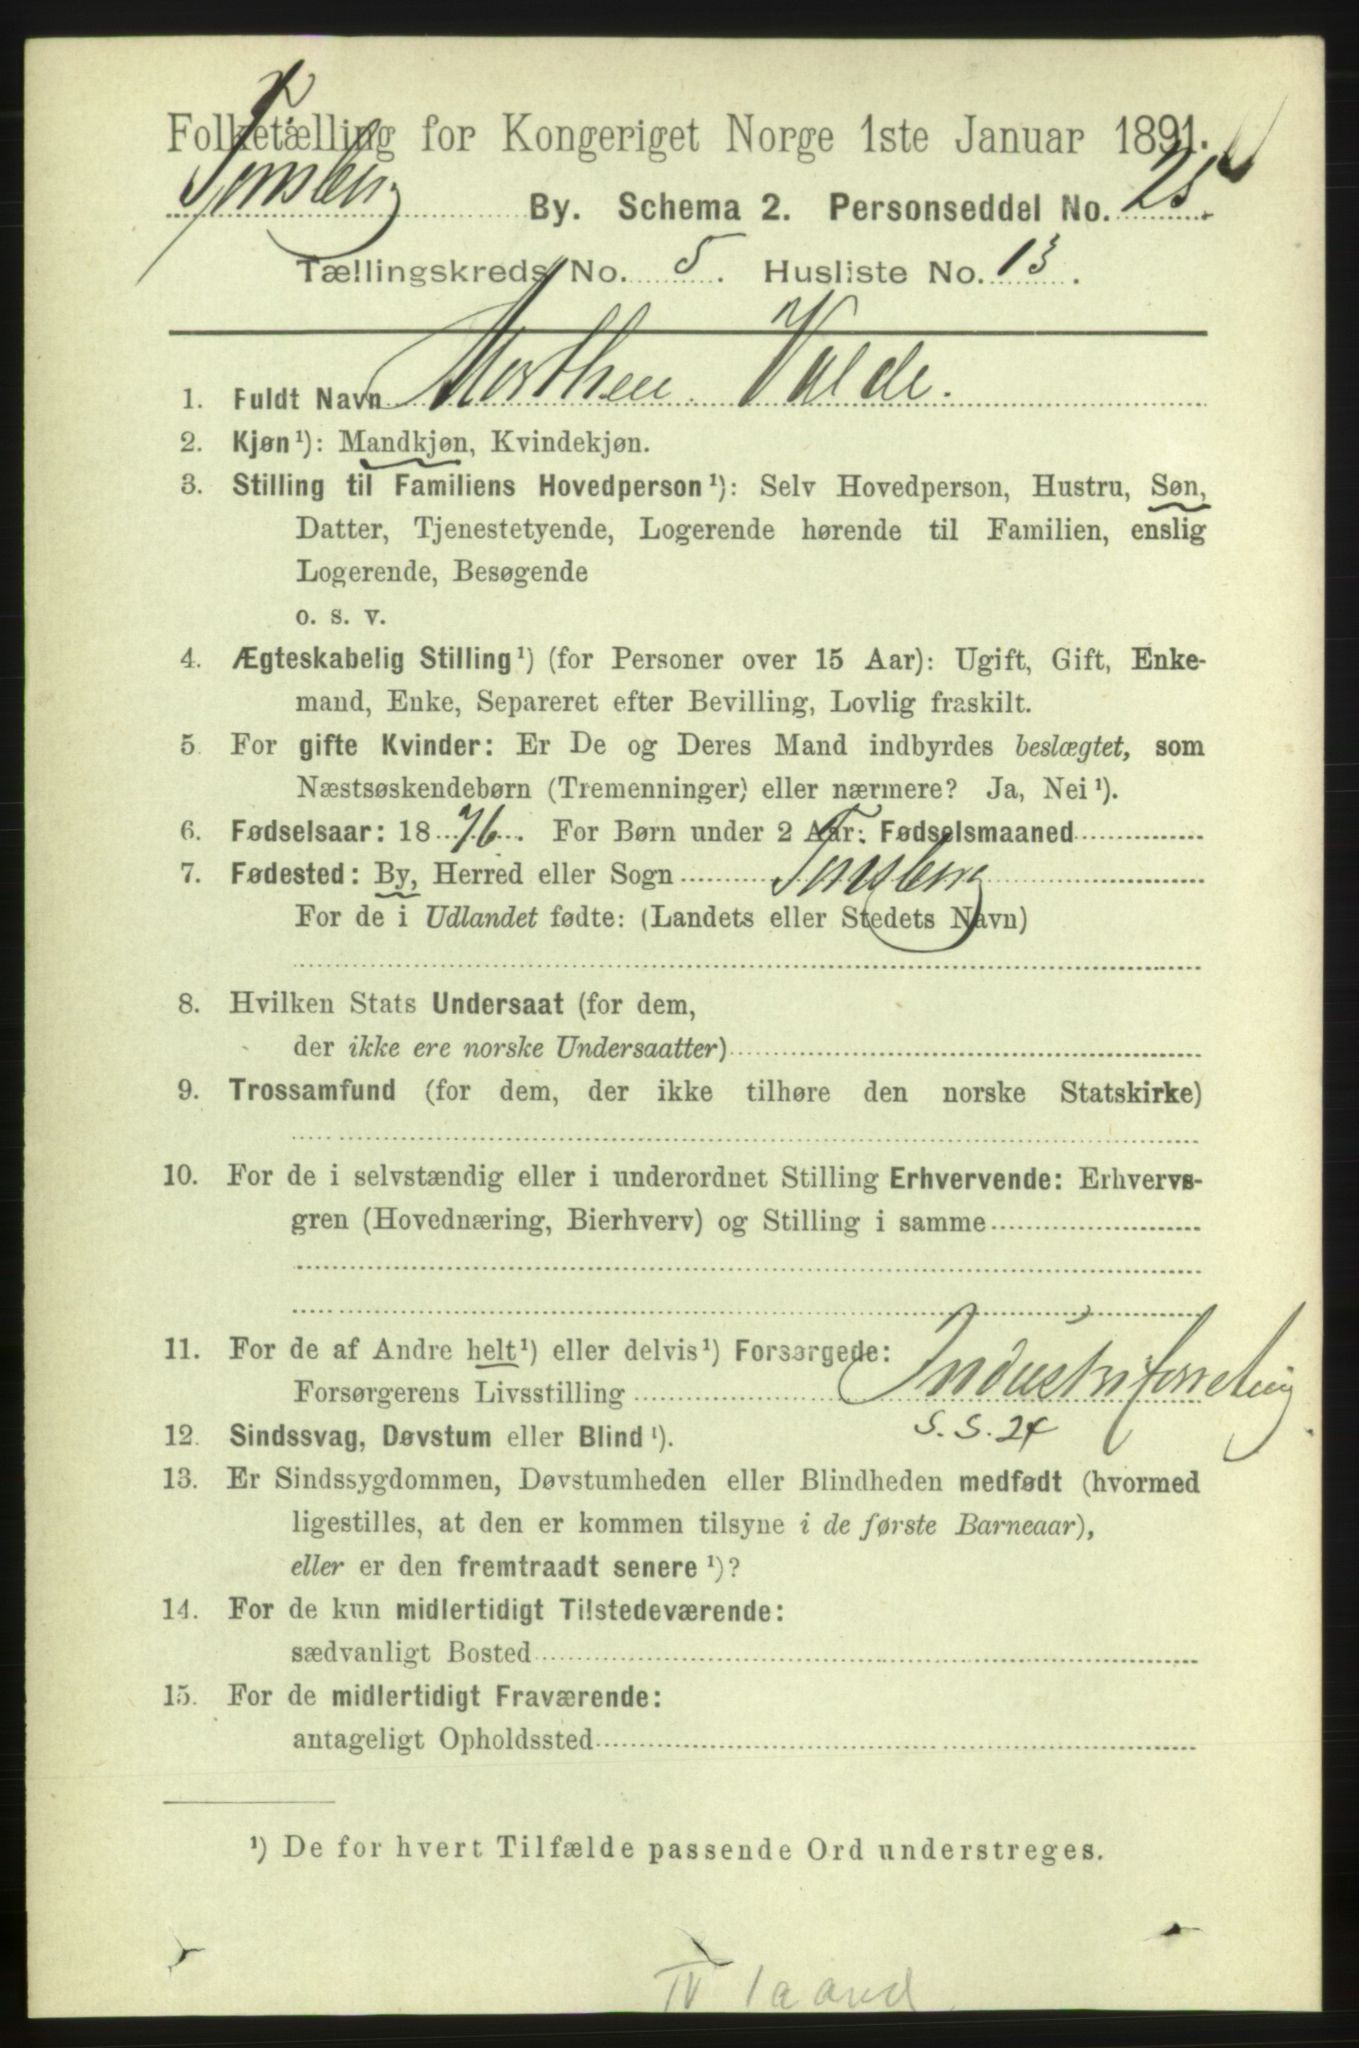 Folketælling for Kongeriget Norge 1ste Januar 1891.
Tønsberg By. Schema 2. Personseddel No. 25.
Tællingskreds No. 5. Husliste No. 13.
1. Fuldt Navn Morthen Valde.
2. Kjøn¹): Mandkjøn, Kvindekjøn.
3. Stilling til Familiens Hovedperson¹): Selv Hovedperson, Hustru, Søn,
Datter, Tjenestetyende, Logerende hørende til Familien, enslig
Logerende, Besøgende
o. s. v.
4. Ægteskabelig Stilling¹) (for Personer over 15 Aar): Ugift, Gift, Enke-
mand, Enke, Separeret efter Bevilling, Lovlig fraskilt.
5. For gifte Kvinder: Er De og Deres Mand indbyrdes beslægtet, som
Næstsøskendebørn (Tremenninger) eller nærmere? Ja, Nei¹).
6. Fødselsaar: 1876. For Børn under 2 Aar: Fødselsmaaned
7. Fødested: By, Herred eller Sogn Tønsberg
For de i Udlandet fødte: (Landets eller Stedets Navn)
8. Hvilken Stats Undersaat (for dem,
der ikke ere norske Undersaatter)
9. Trossamfund (for dem, der ikke tilhøre den norske Statskirke)
10. For de i selvstændig eller i underordnet Stilling Erhvervende: Erhvervs-
gren (Hovednæring, Bierhverv) og Stilling i samme
11. For de af Andre helt¹) eller delvis¹) Forsørgede:
Forsørgerens Livsstilling Industriforretning
S. S. 24
12. Sindssvag, Døvstum eller Blind¹).
13. Er Sindssygdommen, Døvstumheden eller Blindheden medfødt (hvormed
ligestilles, at den er kommen tilsyne i de første Barneaar),
eller er den fremtraadt senere¹)?
14. For de kun midlertidigt Tilstedeværende:
sædvanligt Bosted
15. For de midlertidigt Fraværende:
antageligt Opholdssted
¹) De for hvert Tilfælde passende Ord understreges.
IV